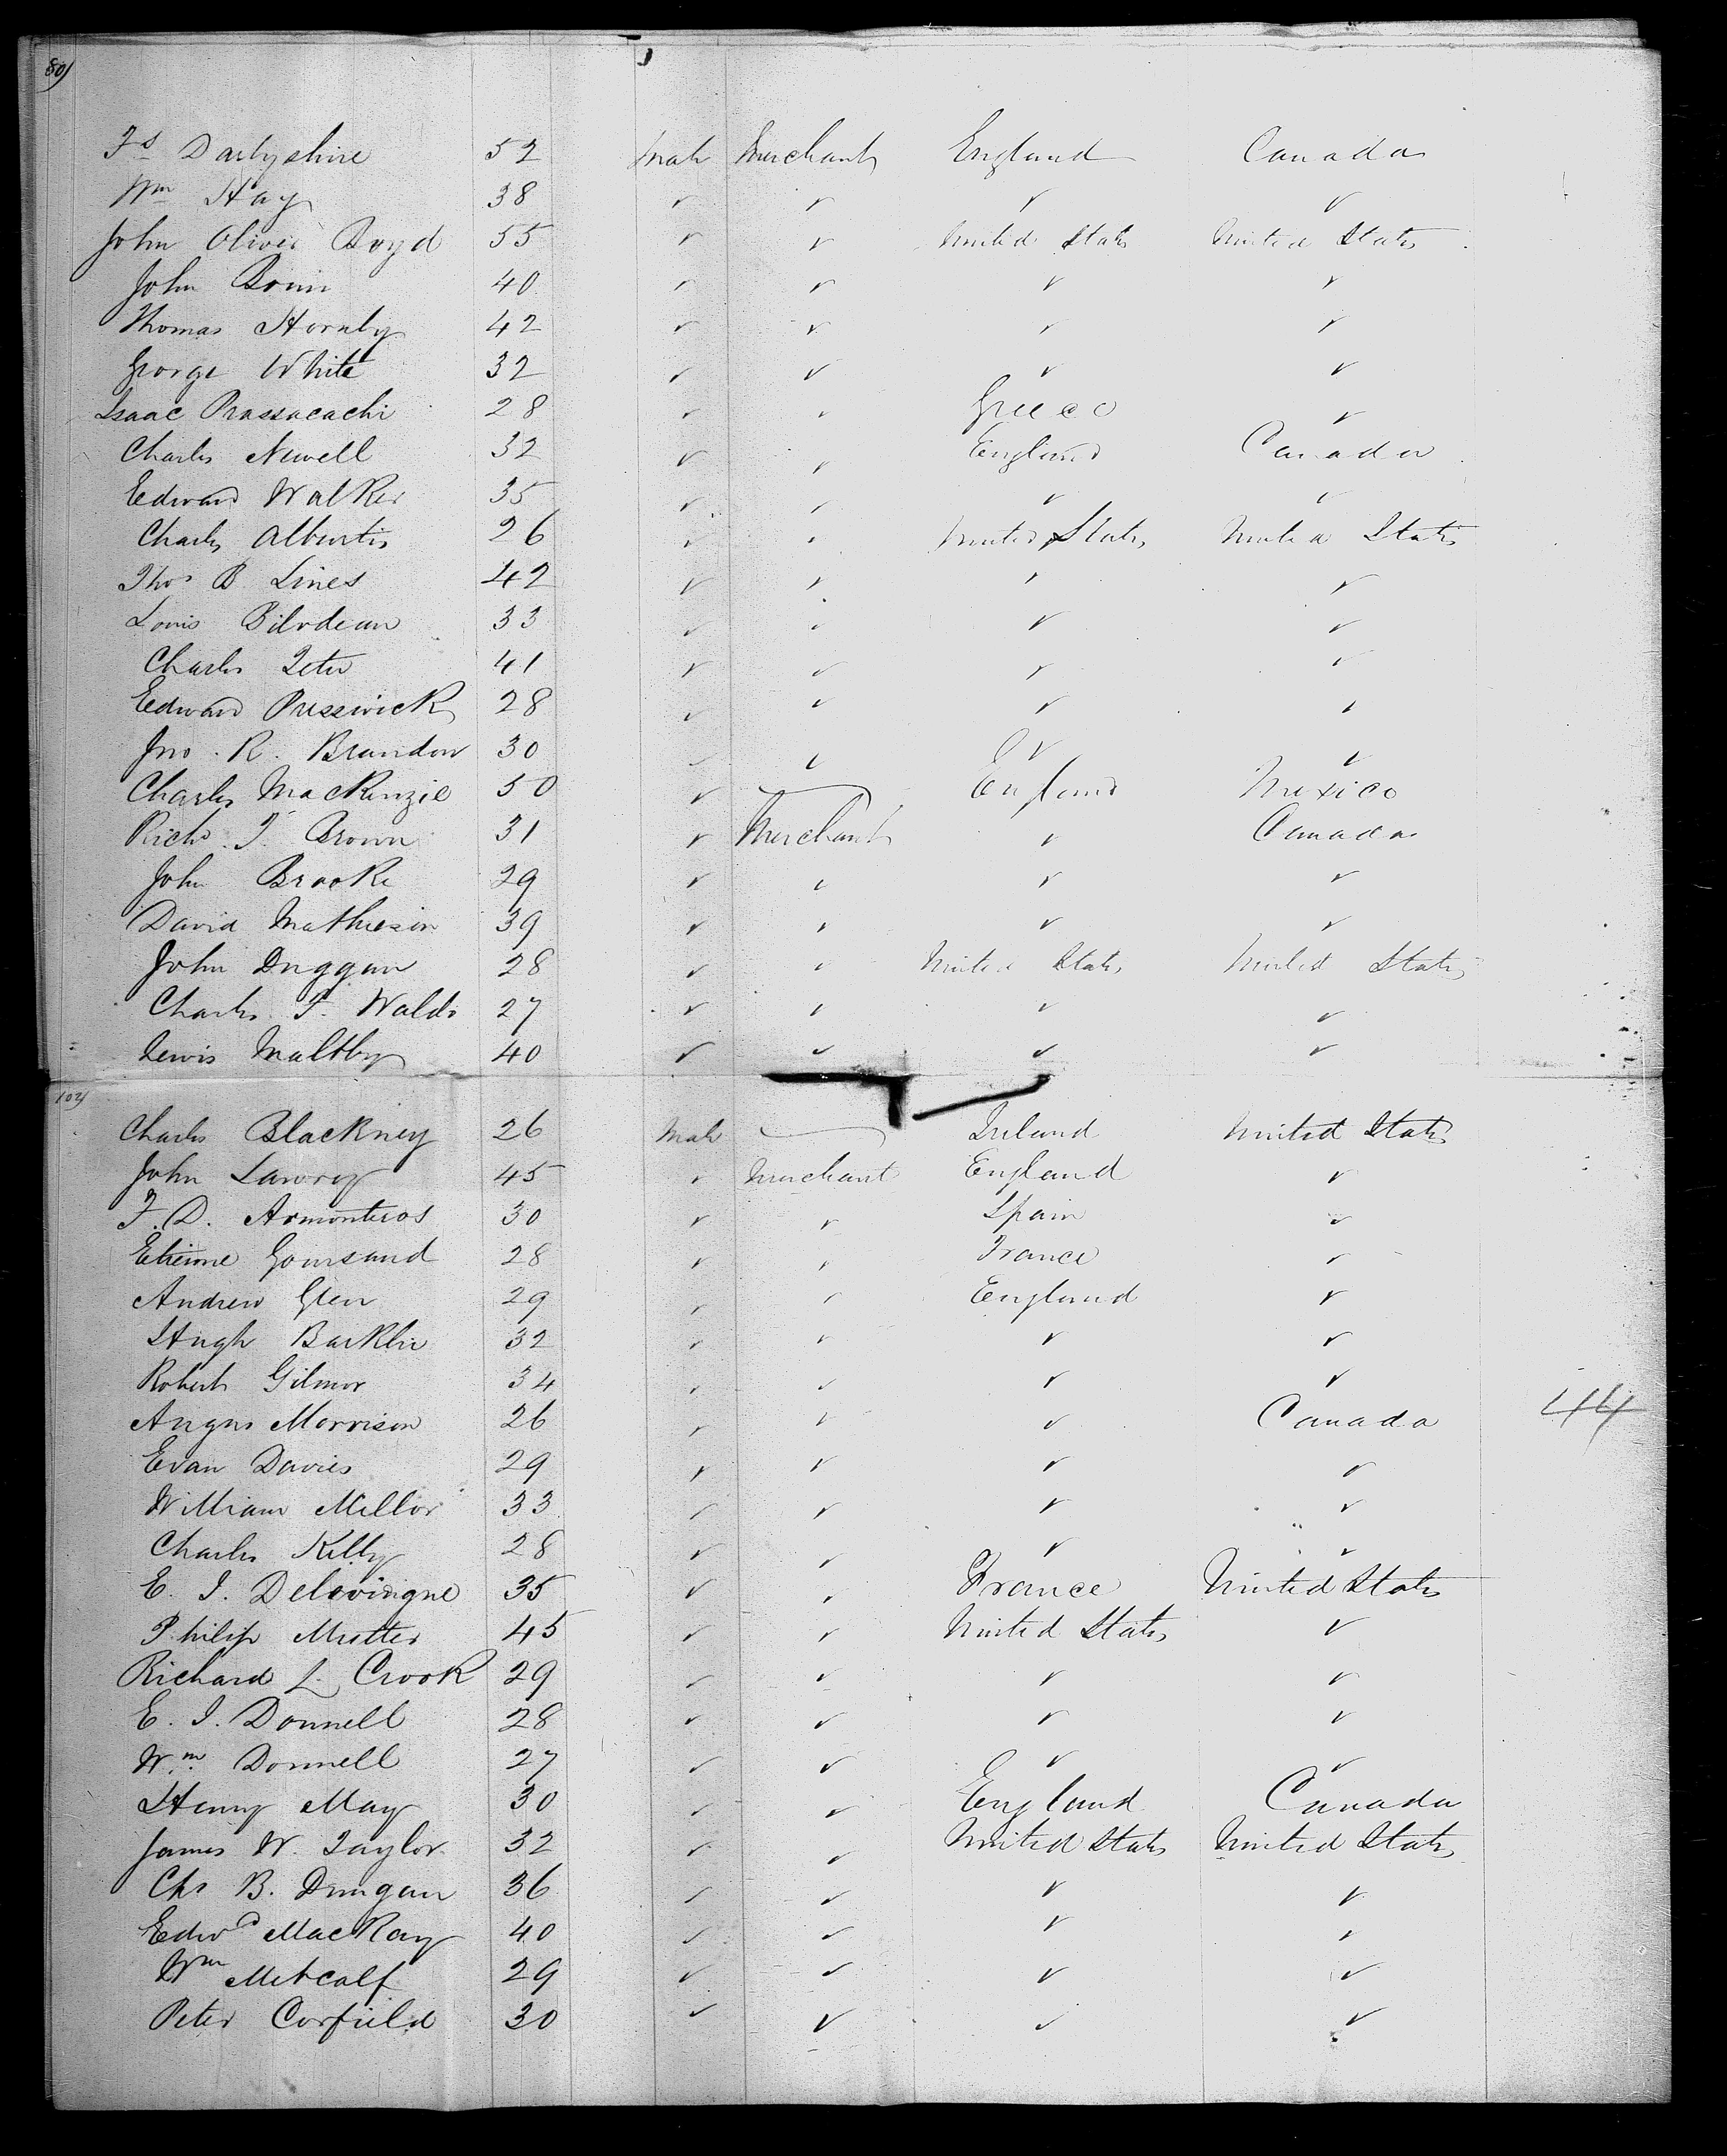 80)
Js Darbyshire 52 Male Merchant England Canada
Wm Hay 38 ✓ ✓ ✓ ✓
John Oliver Boyd 55 ✓ ✓ United States United States
John 40 ✓ ✓ ✓ ✓
Thomas Hornby 42 ✓ ✓ ✓ ✓
George White 32 ✓ ✓ ✓ ✓
Isaac Prassacachi 28 ✓ ✓ Greece ✓
Charles Newell 32 ✓ ✓ England Canada
Edward Walker 35 ✓ ✓ ✓ ✓
Charles Albertis 26 ✓ ✓ United States United States
Thos B Lines 42 ✓ ✓ ✓ ✓
Louis Bilodeau 33 ✓ ✓ ✓ ✓
Charles 41 ✓ ✓ ✓ ✓
Edward Presswick 28 ✓ ✓ ✓ ✓
Jno. R. Brandon 30 ✓ ✓ ✓ ✓
Charles MacKenzie 50 ✓ — England Mexico
Richd T. Brown 31 ✓ Merchant ✓ Canada
John Brooke 29 ✓ ✓ ✓ ✓
David Mathieson 39 ✓ ✓ ✓ ✓
John Duggan 28 ✓ ✓ United States United States
Charles F. Waldo 27 ✓ ✓ ✓ ✓
Lewis Maltby 40 ✓ ✓ ✓ ✓
102)
Charles Blackney 26 Male — Ireland United States
John Lawry 45 ✓ Merchant England ✓
F. D. Armonteros 30 ✓ ✓ Spain ✓
Etienne Goursaud 28 ✓ ✓ France ✓
Andrew Glen 29 ✓ ✓ England ✓
Hugh Barklie 32 ✓ ✓ ✓ ✓
Robert Gilmor 34 ✓ ✓ ✓ ✓
Angus Morrison 26 ✓ ✓ ✓ Canada 44
Evan Davies 29 ✓ ✓ ✓ ✓
William Mellor 33 ✓ ✓ ✓ ✓
Charles Kelly 28 ✓ ✓ ✓ ✓
E. I. Delavingne 35 ✓ ✓ France United States
Philip Mutter 45 ✓ ✓ United States ✓
Richard L. Crook 29 ✓ ✓ ✓ ✓
E. I. Donnell 28 ✓ ✓ ✓ ✓
Wm Donnell 27 ✓ ✓ ✓ ✓
Henry May 30 ✓ ✓ England Canada
James W. Taylor 32 ✓ ✓ United States United States
Chs B. Dungan 36 ✓ ✓ ✓ ✓
Edwd MacKay 40 ✓ ✓ ✓ ✓
Wm Metcalf 29 ✓ ✓ ✓ ✓
Peter Corfield 30 ✓ ✓ ✓ ✓